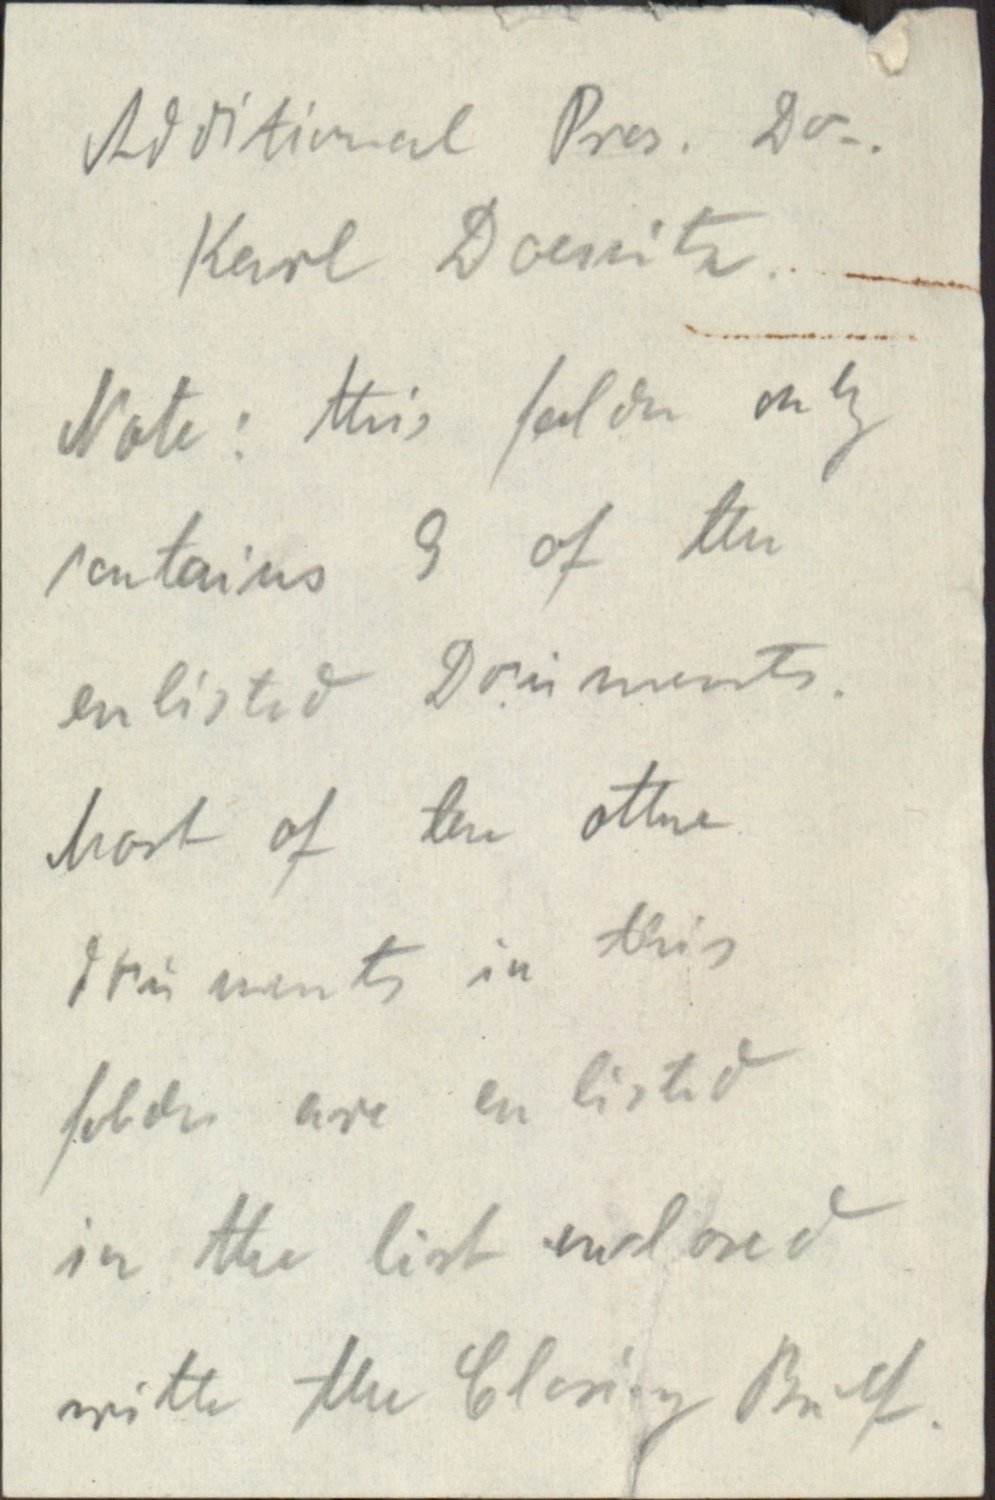 Additional Pros. Doc.
Karl Doenitz.
Note: this folder only
contains 9 of the
enlisted Documents.
Most of the other
documents in this
folder are enlisted
in the list enclosed
with the Closing Brief.